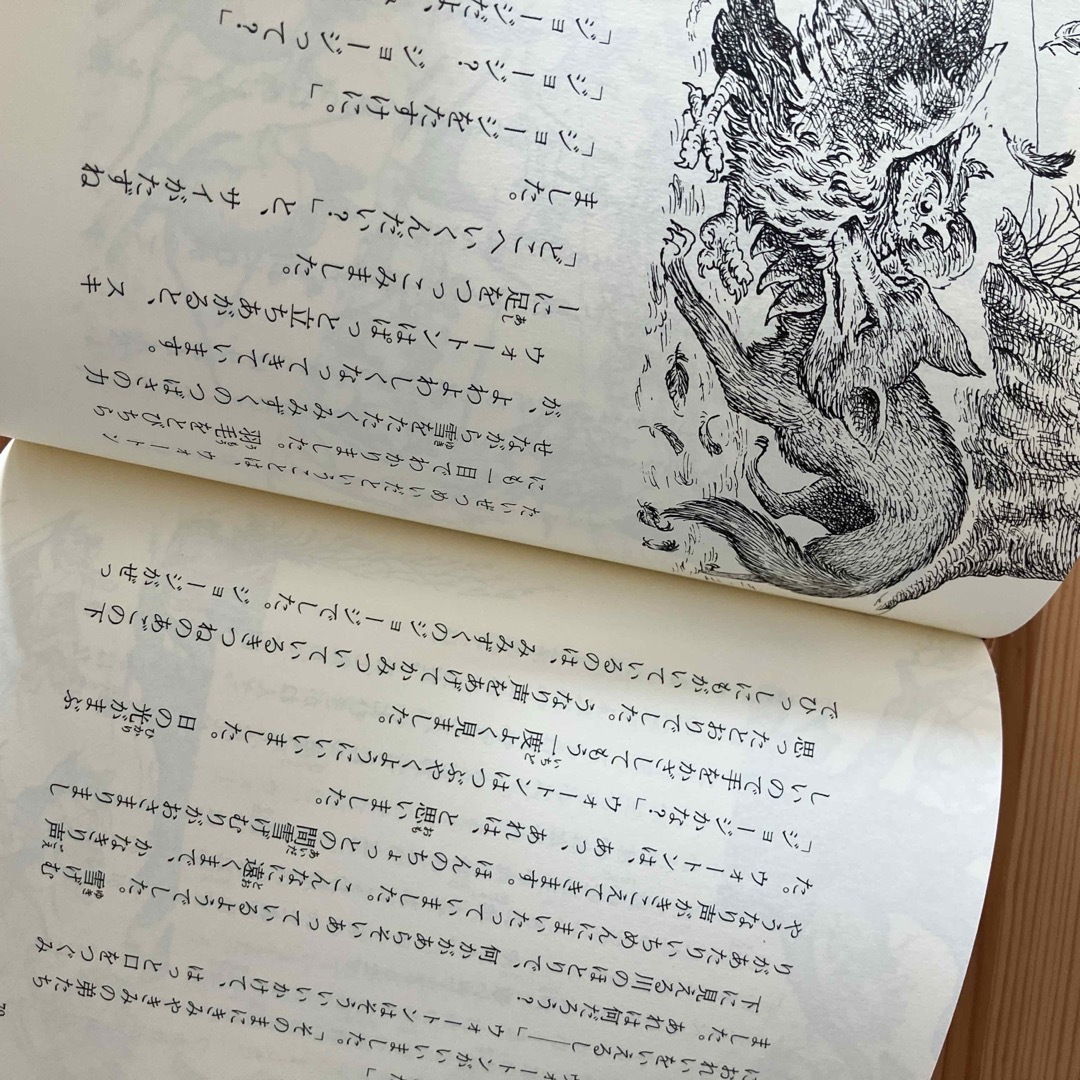 ウォートンがいいました。「そのまにきみやきみの弟たち
におれいをいえるし――」ウォートンはそういいかけて、はっと口をつぐみ
ました。あれは何だろう?
下に見える川のほとりで、何かがあらそいあっているようでした。雪げむ
りがあたりいちめんにまいたっていました。こんなに遠くまで、かなきり声
やうなり声がきこえてきます。ほんのちょっとの間雪げむりがおさまりまし
た。ウォートンは、あっ、あれは、と思いました。
「ジョージかな?」ウォートンはつぶやくようにいいました。日の光がまぶ
しいので手をかざしてもう一度よく見ました。
思ったとおりでした。うなり声をあげてかみついているきつねのあごの下
でひっしにもがいているのは、みみずくのジョージでした。ジョージがぜっ
たいぜつめいだということは、ウォートン
にも一目でわかりました。羽毛をとびちら
せながら雪をたたくみみずくのつばさの力
が、よわよわしくなってきています。
ウォートンはぱっと立ちあがると、スキ
ーに足をつっこみました。
「どこへいくんだい?」と、サイがたずね
ました。
「ジョージをたすけに。」
「ジョージ? ジョージって?」
「ジョージだよ、